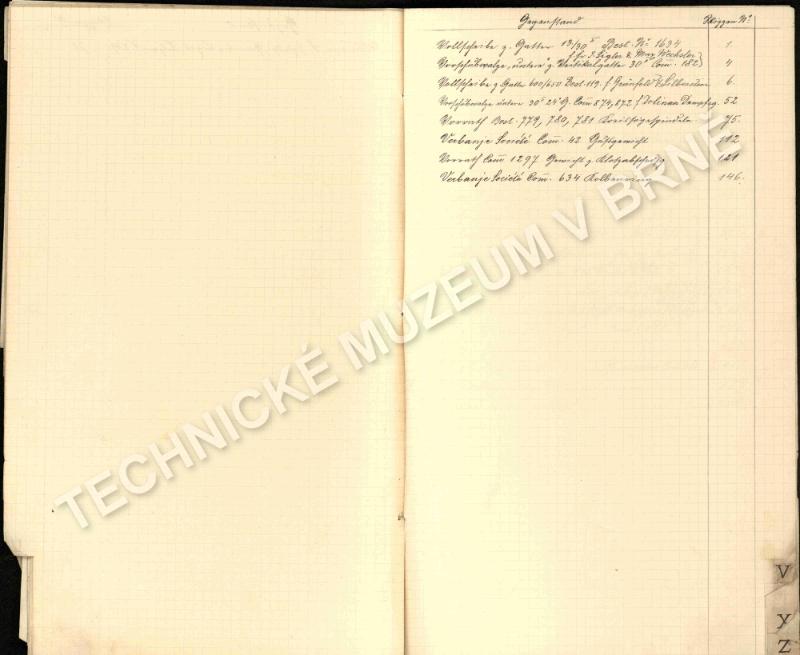 Gegenstand Skizzen No.
Vollscheibe z. Gatter 13/30" Best. No. 1634 1.
f. Fr. J. Ziegler & Max Wechsler
Vorschubwalze, untere z. Vertikalgatter 30" Com. 182 4
Vollscheibe z. Gatter 600/650 Best. 119. f. Grünfeld 6.
Vorschubwalze untere 30" 24" G. Com 874, 872 f. Dolinan Dampfsg. 52
Vorrath Best. 779, 780, 781 Kreissägespindeln 75.
Verbanje Société Com. 43 Gußgewicht 112
Vorrath Com 1297 Gewicht z. 121
Verbanje Société Com. 634 Kolbenring 146.
TECHNICKÉ MUZEUM V BRNĚ
V
X Y
Z